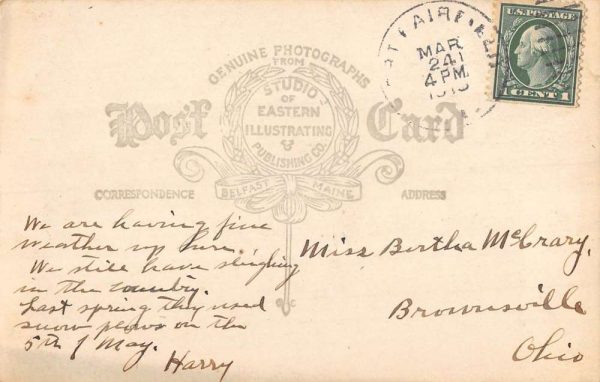 GENUINE PHOTOGRAPHS
FROM
STUDIOS
OF
EASTERN
ILLUSTRATING
&
PUBLISHING CO.
Post Card
BELFAST MAINE
CORRESPONDENCE
ADDRESS
MAR
24
4 PM
U.S. POSTAGE
1 CENT 1
We are having fine
weather up here.
We still have sleighing
in the country.
Last spring they used
snow plows on the
5th of May.
Harry
Miss Bertha McCrary.
Brownsville
Ohio